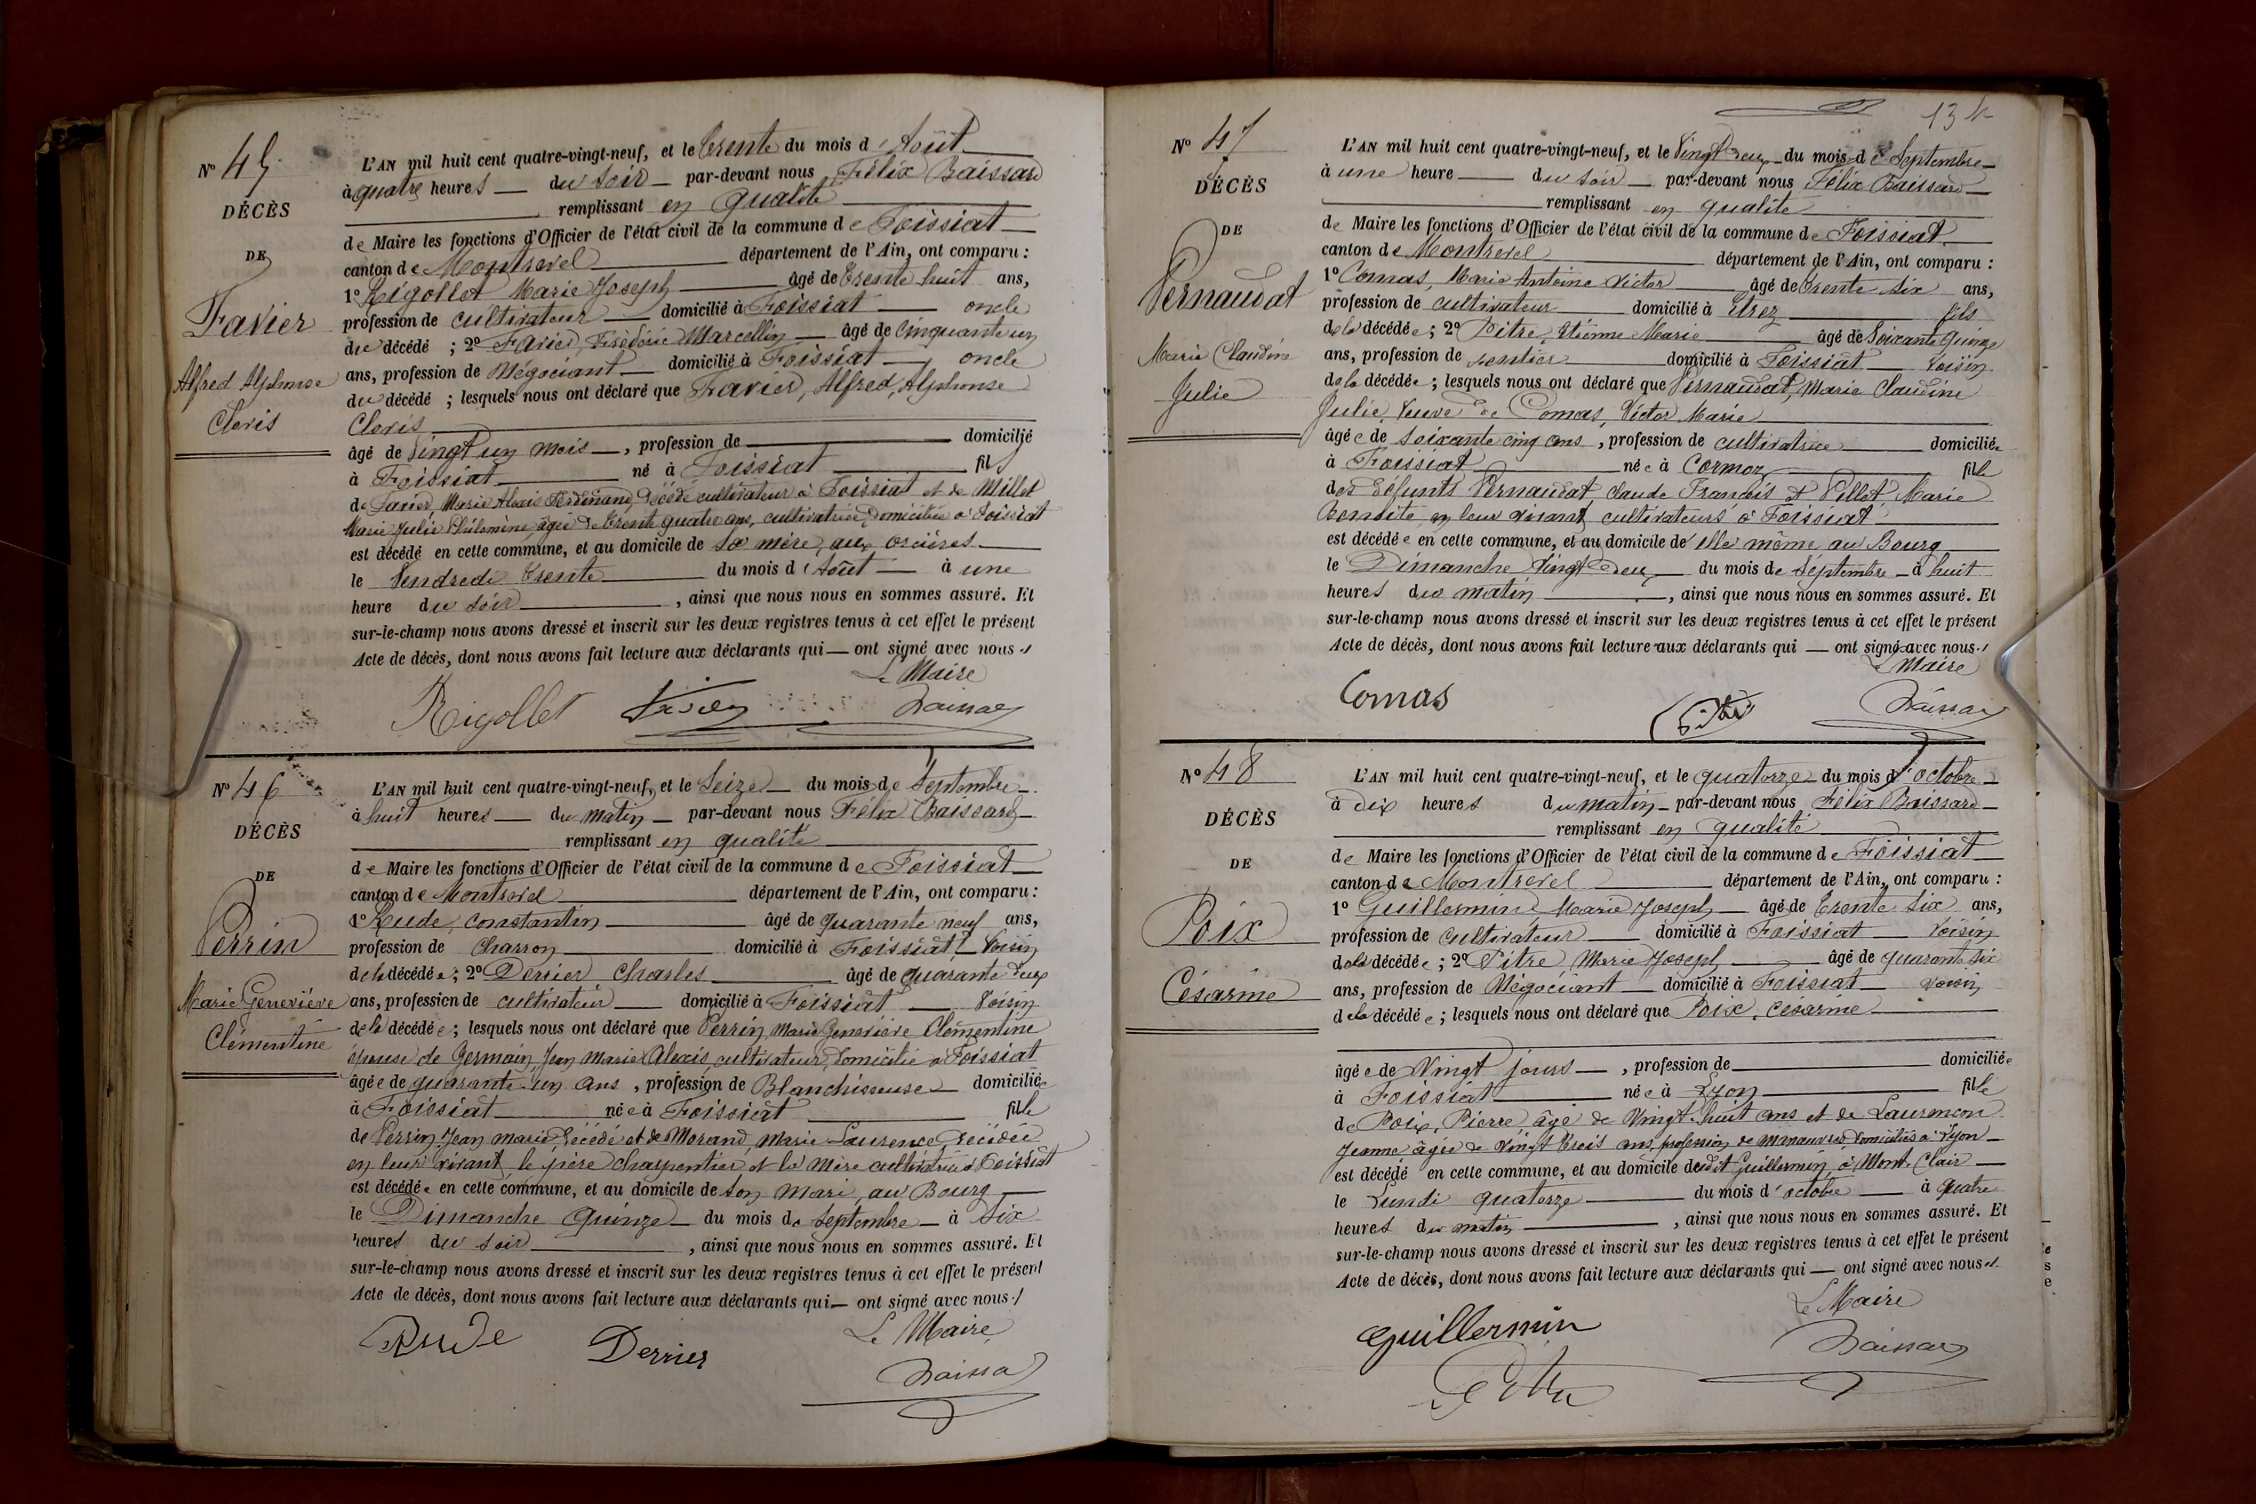 N° 45
DÉCÈS
DE
Favier
Alfred Alphonse
Cloris
L'AN mil huit cent quatre-vingt-neuf, et le Trente du mois d'Août
à quatre heures du soir par-devant nous Félix Baissard
remplissant en qualité
de Maire les fonctions d'Officier de l'état civil de la commune de Foissiat
canton de Montrevel département de l'Ain, ont comparu :
1° Rigollet Marie Joseph âgé de Trente huit ans,
profession de cultivateur domicilié à Foissiat oncle
du décédé ; 2° Favier, Frédéric Marcellin âgé de cinquante un
ans, profession de Négociant domicilié à Foissiat oncle
du décédé ; lesquels nous ont déclaré que Favier, Alfred, Alphonse
Cloris
âgé de Vingt un mois , profession de domicilié
à Foissiat né à Foissiat fils
de Favier, Marie Alexis Ferdinand, décédé cultivateur à Foissiat et de Millet
Marie Julie Philomène, âgée de trente quatre ans, cultivatrice, domiciliée à Foissiat
est décédé en cette commune, et au domicile de sa mère, aux
le Vendredi trente du mois d'Août à une
heure du soir , ainsi que nous nous en sommes assuré. Et
sur-le-champ nous avons dressé et inscrit sur les deux registres tenus à cet effet le présent
Acte de décès, dont nous avons fait lecture aux déclarants qui ont signé avec nous
Le Maire
Rigollet Favier Baissard
N° 46
DÉCÈS
DE
Perrin
Marie Geneviève
Clémentine
L'AN mil huit cent quatre-vingt-neuf, et le Seize du mois de Septembre
à huit heures du matin par-devant nous Félix Baissard
remplissant en qualité
de Maire les fonctions d'Officier de l'état civil de la commune de Foissiat
canton de Montrevel département de l'Ain, ont comparu :
1° Rude, constantin âgé de quarante neuf ans,
profession de charron domicilié à Foissiat Voisin
de la décédée ; 2° Derrier Charles âgé de quarante deux
ans, profession de cultivateur domicilié à Foissiat Voisin
de la décédée ; lesquels nous ont déclaré que Perrin, Marie Geneviève Clémentine
épouse de Germain, Jean Marie Alexis, cultivateur, domicilié à Foissiat
âgée de quarante-un ans , profession de Blanchisseuse domiciliée
à Foissiat née à Foissiat fille
de Perrin Jean marie décédé et de Morand, Marie Laurence, décédée
en leur vivant le père charpentier et la mère cultivatrice à Foissiat
est décédée en cette commune, et au domicile de son mari, au Bourg
le Dimanche quinze du mois de Septembre à six
heures du soir , ainsi que nous nous en sommes assuré. Et
sur-le-champ nous avons dressé et inscrit sur les deux registres tenus à cet effet le présent
Acte de décès, dont nous avons fait lecture aux déclarants qui ont signé avec nous
Le Maire
Rude Derrier Baissard
134
N° 47
DÉCÈS
DE
Pernaudat
Marie Claudine
Julie
L'AN mil huit cent quatre-vingt-neuf, et le Vingt deux du mois de Septembre
à une heure du soir par-devant nous Félix Baissard
remplissant en qualité
de Maire les fonctions d'Officier de l'état civil de la commune de Foissiat
canton de Montrevel département de l'Ain, ont comparu :
1° Comas, Marie Antoine Victor âgé de trente six ans,
profession de cultivateur domicilié à Etrez fils
de la décédée ; 2° Pitre, Etienne Marie âgé de Soixante quinze
ans, profession de rentier domicilié à Foissiat Voisin
de la décédée ; lesquels nous ont déclaré que Pernaudat, Marie Claudine
Julie, Veuve de Comas, Victor Marie
âgée de soixante cinq ans , profession de cultivatrice domiciliée
à Foissiat née à Cormoz fille
des défunts Pernaudat, Claude François et Pellet, Marie
Benoite, en leur vivant, cultivateurs à Foissiat
est décédée en cette commune, et au domicile de elle même, au Bourg
le Dimanche Vingt deux du mois de Septembre à huit
heures du matin , ainsi que nous nous en sommes assuré. Et
sur-le-champ nous avons dressé et inscrit sur les deux registres tenus à cet effet le présent
Acte de décès, dont nous avons fait lecture aux déclarants qui ont signé avec nous
Le Maire
Comas Pitre Baissard
N° 48
DÉCÈS
DE
Poix
Césarine
L'AN mil huit cent quatre-vingt-neuf, et le quatorze du mois d'octobre
à dix heures du matin par-devant nous Félix Baissard
remplissant en qualité
de Maire les fonctions d'Officier de l'état civil de la commune de Foissiat
canton de Montrevel département de l'Ain, ont comparu :
1° Guillermin Marie Joseph âgé de Trente six ans,
profession de cultivateur domicilié à Foissiat Voisin
de la décédée ; 2° Pitre Marie Joseph âgé de quarante six
ans, profession de Négociant domicilié à Foissiat voisin
de la décédée ; lesquels nous ont déclaré que Poix, Césarine
âgée de Vingt jours , profession de domiciliée
à Foissiat née à Lyon fille
de Poix, Pierre âgé de Vingt-huit ans et de Laurençon
Jeanne âgée de Vingt trois ans, profession de manœuvres domiciliés à Lyon
est décédé en cette commune, et au domicile dudit Guillermin, à Mont-Clair
le Lundi quatorze du mois d'octobre à quatre
heures du matin , ainsi que nous nous en sommes assuré. Et
sur-le-champ nous avons dressé et inscrit sur les deux registres tenus à cet effet le présent
Acte de décès, dont nous avons fait lecture aux déclarants qui ont signé avec nous
Le Maire
Guillermin Baissard
Pitre